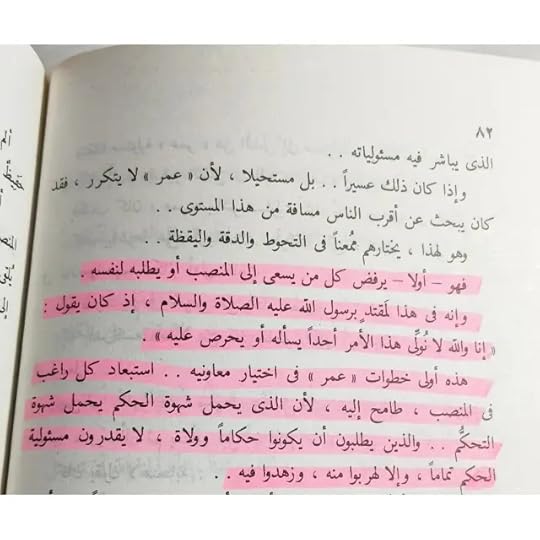 ٨٢
الذى يباشر فيه مسئولياته . .
وإذا كان ذلك عسيراً . . بل مستحيلا ، لأن « عمر » لا يتكرر ، فقد
كان يبحث عن أقرب الناس مسافة من هذا المستوى . .
وهو لهذا ، يختارهم مُمعناً فى التحوط والدقة واليقظة . .
فهو – أولا – يرفض كل من يسعى إلى المنصب أو يطلبه لنفسه .
وإنه فى هذا لَمقتدٍ برسول الله عليه الصلاة والسلام ، إذ كان يقول :
« إنا والله لا نُولِّى هذا الأمر أحداً يسأله أو يحرص عليه » .
هذه أولى خطوات « عمر » فى اختيار معاونيه . . استبعاد كل راغب
فى المنصب ، طامح إليه ، لأن الذى يحمل شهوة الحكم يحمل شهوة
التحكُّم . . والذين يطلبون أن يكونوا حكاماً وولاة ، لا يقدرون مسئولية
الحكم تماماً ، وإلا لهربوا منه ، وزهدوا فيه . .